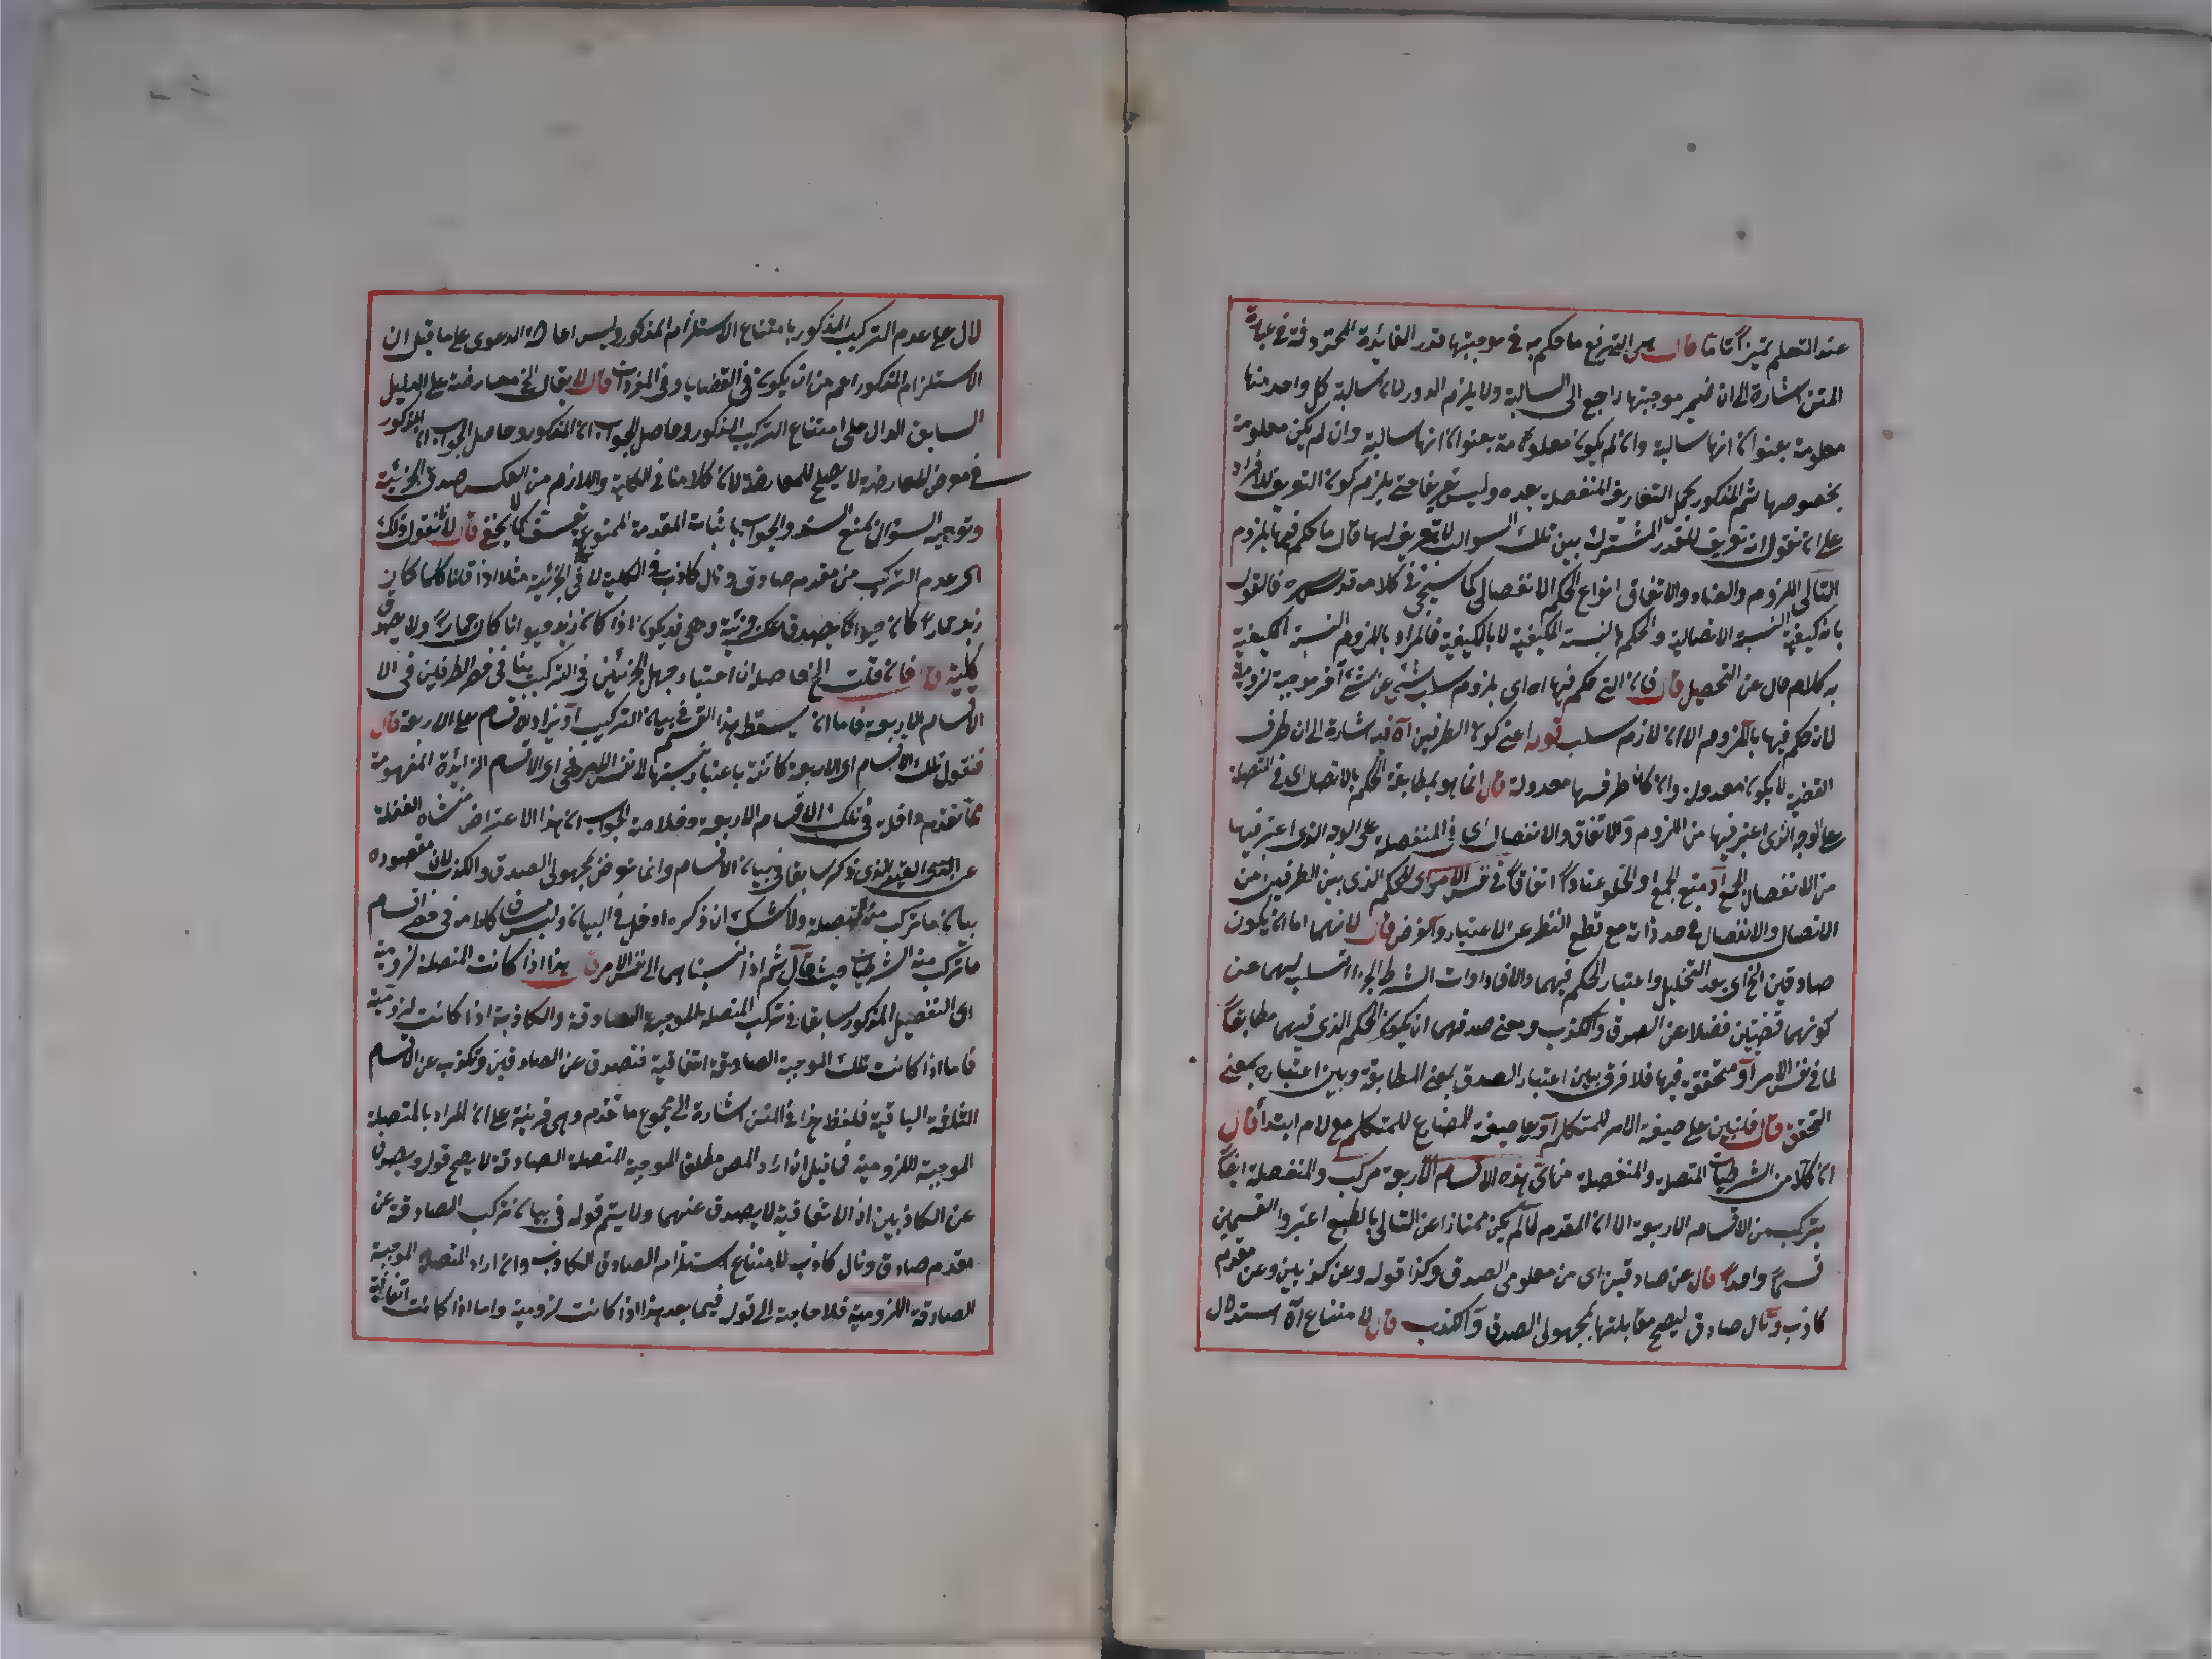 عند التعلم تميزا تاما قال هى التى رفع ما حكم به فى موجبتها قدر الفائدة المحذوفة فى عبارة
المتن اشارة الى ان ضمير موجبتها راجع الى السالبة ولا يلزم الدور لان سالبة كل واحد منها
معلومة بعنوان انها سالبة وان لم يكون معلومة بعنوان انها سالبة وان لم يكن معلومة
بخصوصها ثم المذكور مجمل التعاريف المنفصلة بعده وليس تعريفا حتى يلزم كون التعريف للافراد
على ان نقول انه تعريف للقدر المشترك بين تلك السوالب لا تعريف لها قال ما حكم فيها بلزوم
التالى اللزوم والعناد والاتفاق انواع الحكم الانفصالى كما سيجئ فى كلامه قدس سره فالقول
بانه كيفية النسبة الاتصالية والحكم بالنسبة الكيفية لا بالكيفية فالمراد باللزوم النسبة الكيفية
به كلام خال عن التحصيل قال فان التى حكم فيها اه اى بلزوم سلب شئ عن شئ آخر موجبة لزومية
لانه حكم فيها باللزوم الا ان لازم سلب قوله اعنى كون الطرفين آه فيه اشارة الى ان طرف
القضية لا يكون معدولة وان كان طرفها معدولة قال انما هو بمطابقة الحكم بالاتصال اى فى المتصلة
على الوجه الذى اعتبر فيها من اللزوم والاتفاق والانفصال اى فى المنفصلة على الوجه الذى اعتبر فيها
من الانفصال الجمع او منع الجمع او الخلو عنادا او اتفاقا فى نفس الامر اى للحكم الذى بين الطرفين من
الاتصال والانفصال فى حد ذاته مع قطع النظر عن الاعتبار والفرض قال لانهما اما ان يكون
صادقين الخ اى بعد التحليل واعتبار الحكم فيهما والا فادوات الشرط والجزاء تسلبهما عن
كونهما قضيتين فضلا عن الصدق والكذب ومعنى صدقهما ان يكون الحكم الذى فيهما مطابقا
لما فى نفس الامر او متحققة فيها فلا فرق بين اعتبار الصدق بمعنى المطابقة وبين اعتباره بمعنى
التحقق قال فلنبين على صيغة الامر للمتكلم او على صيغة المضارع للمتكلم مع لام ابتدا قال
ان كلا من الشرطيات المتصلة والمنفصلة من اى هذه الاقسام الاربعة مركب والمنفصلة ايضا
يتركب من الاقسام الاربعة الا ان المقدم لما لم يكن ممتازا عن التالى بالطبع اعتبروا القسمين
قسما واحدا قال عن صادقين اى من معلومى الصدق وكذا قوله وعن كذبين وعن مقدم
كاذب وتال صادق ليصح مقابلتها بمجهولى الصدق والكذب قال لامتناع آه استدلال
لال على عدم التركيب المذكور بامتناع الاستلزام المذكور وليس اعادة الدعوى على ما قيل ان
الاستلزام المذكور اعم من ان يكون فى القضايا وفى المفردات قال لا يقال الخ معارضة على الدليل
السابق الدال على امتناع التركيب المذكور وحاصل الجواب ان المذكور وحاصل الجواب ان المذكور
فى معرض المعارضة لا يصلح للمعارضة لان كلامنا فى الكلية واللازم من العكس صدق الجزئية
وتوجيه السؤال بمنع السند والجواب باثبات المقدمة الممنوعة تعسف كما لا يخفى قال لانا نقول ذلك
اى عدم التركب من مقدم صادق وتال كاذب فى الكلية لا فى الجزئية مثلا اذا قلنا كلما كان
زيد حمارا كان حيوانا يصدق عكسه جزئية وهى قد يكون اذا كان زيد حيوانا كان حمارا ولا يصدق
كلية قال فان قلت الخ حاصله ان اعتبار جهل الجزئين فى التركيب ينافى حصر الطرفين فى الا
الاقسام الاربعة فاما ان يسقط هذا القسم فى بيان التركيب او يزاد الاقسام على الاربعة قال
فنقول تلك الاقسام اى الاربعة كائنة باعتبار نسبتها الى نفس الامر هى اى الاقسام الزائدة المفهومة
مما تقدم داخلة فى تلك الاقسام الاربعة وخلاصة الجواب ان هذا الاعتراض منشاه الغفلة
عن القيد الذى ذكر سابقا فى بيان الاقسام وانما تعرض بمجهولى الصدق والكذب لان مقصوده
بيان ما تركب منه المتصلة ولا شك ان ذكره ادخل فى البيان وليس كلامه فى حصر اقسام
ما تركب منه الشرطيات حيث قال ثم اذا نسبناهما الى نفس الامر قال هذا اذا كانت المتصلة لزومية
اى التفصيل المذكور سابقا فى تركب المتصلة الموجبة الصادقة والكاذبة اذا كانت لزومية
فاما اذا كانت تلك الموجبة الصادقة اتفاقية فتصدق عن الصادقين وتكذب عن الاقسام
الثلثة الباقية فلفظ هذا فى المتن اشارة الى مجموع ما تقدم وهى قرينة على ان المراد بالمتصلة
الموجبة اللزومية فما قيل ان اراد المص مطلق الموجبة المتصلة الصادقة لا يصح قوله ويصدق
عن الكاذبين اذ الاتفاقية لا يصدق عنهما ولا يتم قوله فى بيان تركب الصادقة عن
مقدم صادق وتال كاذب لامتناع استلزام الصادق الكاذب وان اراد المتصلة الموجبة
الصادقة اللزومية فلا حاجة الى قوله فيما بعد هذا اذا كانت لزومية واما اذا كانت اتفاقية